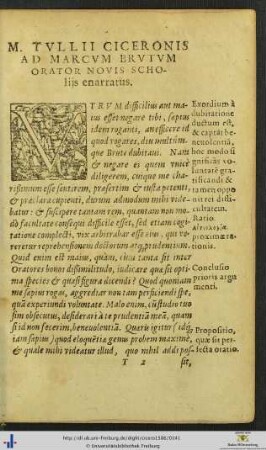 M. TVLLII CICERONIS
AD MARCVM BRVTVM
ORATOR NOVIS SCHO-
lijs enarratus.
VTRVM difficilius aut ma-
ius esset negare tibi, sæpius
idem roganti, an efficere id
quod rogares, diu multúmque
Brute dubitaui. Nam
& negare ei quem vnicè
diligerem, cuíque me cha-
rissimum esse sentirem, præsertim & iusta petenti,
& præclara cupienti, durum admodum mihi vide-
batur: & suscipere tantam rem, quantam non mo-
dò facultate consequi difficile esset, sed etiam cogi-
tatione complecti, vix arbitrabar esse eius, qui ve-
reretur reprehensionem doctorum atq; prudentium.
Quid enim est maius, quàm, cùm tanta sit inter
Oratores bonos dissimilitudo, indicare quæ sit opti-
ma species & quasi figura dicendi? Quod quoniam
me sæpius rogas, aggrediar non tam perficiendi spe,
quàm experiundi voluntate. Malo enim, cùm studio tuo
sim obsecutus, desiderari à te prudentiã meã, quam
si id non fecerim, beneuolentiã. Quæris igitur (idq;
iam sæpius) quod eloquētiæ genus probem maximè,
& quale mihi videatur illud, quo nihil addi pos-
T 2 sit,
Exordium à
dubitatione
ductum est,
& captat be-
neuolentiã,
hoc modo si
gnificãs vo-
luntatē gra-
tificandi &
tamen oppo
nit rei diffi-
cultatem.
Ratio
proxima ra-
tionis.
Conclusio
prioris argu
menti.
Propositio,
quæ sit per-
fecta oratio.
© Universitätsbibliothek Freiburg